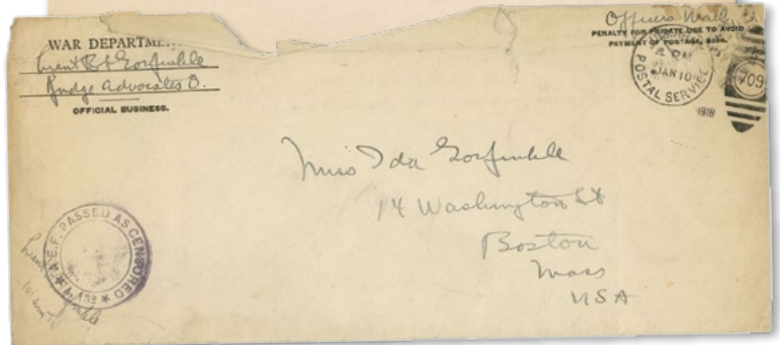 WAR DEPARTME
Lieut B L Gorfinkle
Judge Advocates O.
OFFICIAL BUSINESS.
Officers Mail
PENALTY FOR PRIVATE USE TO AVOID
PAYMENT OF POSTAGE, $300.
POSTAL SERVICE
JAN 10
1918
709
Miss Ida Gorfinkle
14 Washington St
Boston
Mass
USA
A.E.F. PASSED AS CENSORED
Lieut